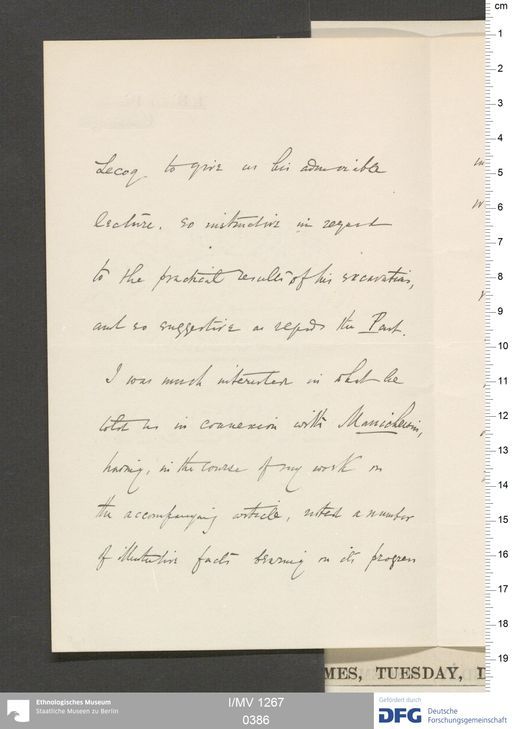 Lecoq to give us his admirable
lecture. so instructive in regard
to the practical results of his excavations,
and so suggestive as regards the Past.
I was much interested in what he
told us in connexion with Manicheism,
having, in the course of my work on
the accompanying article, noted a number
of illustrative facts bearing on its progress
MES, TUESDAY, D
cm
1
2
3
4
5
6
7
8
9
10
11
12
13
14
15
16
17
18
19
Ethnologisches Museum
Staatliche Museen zu Berlin
I/MV 1267
0386
Gefördert durch
DFG Deutsche
Forschungsgemeinschaft